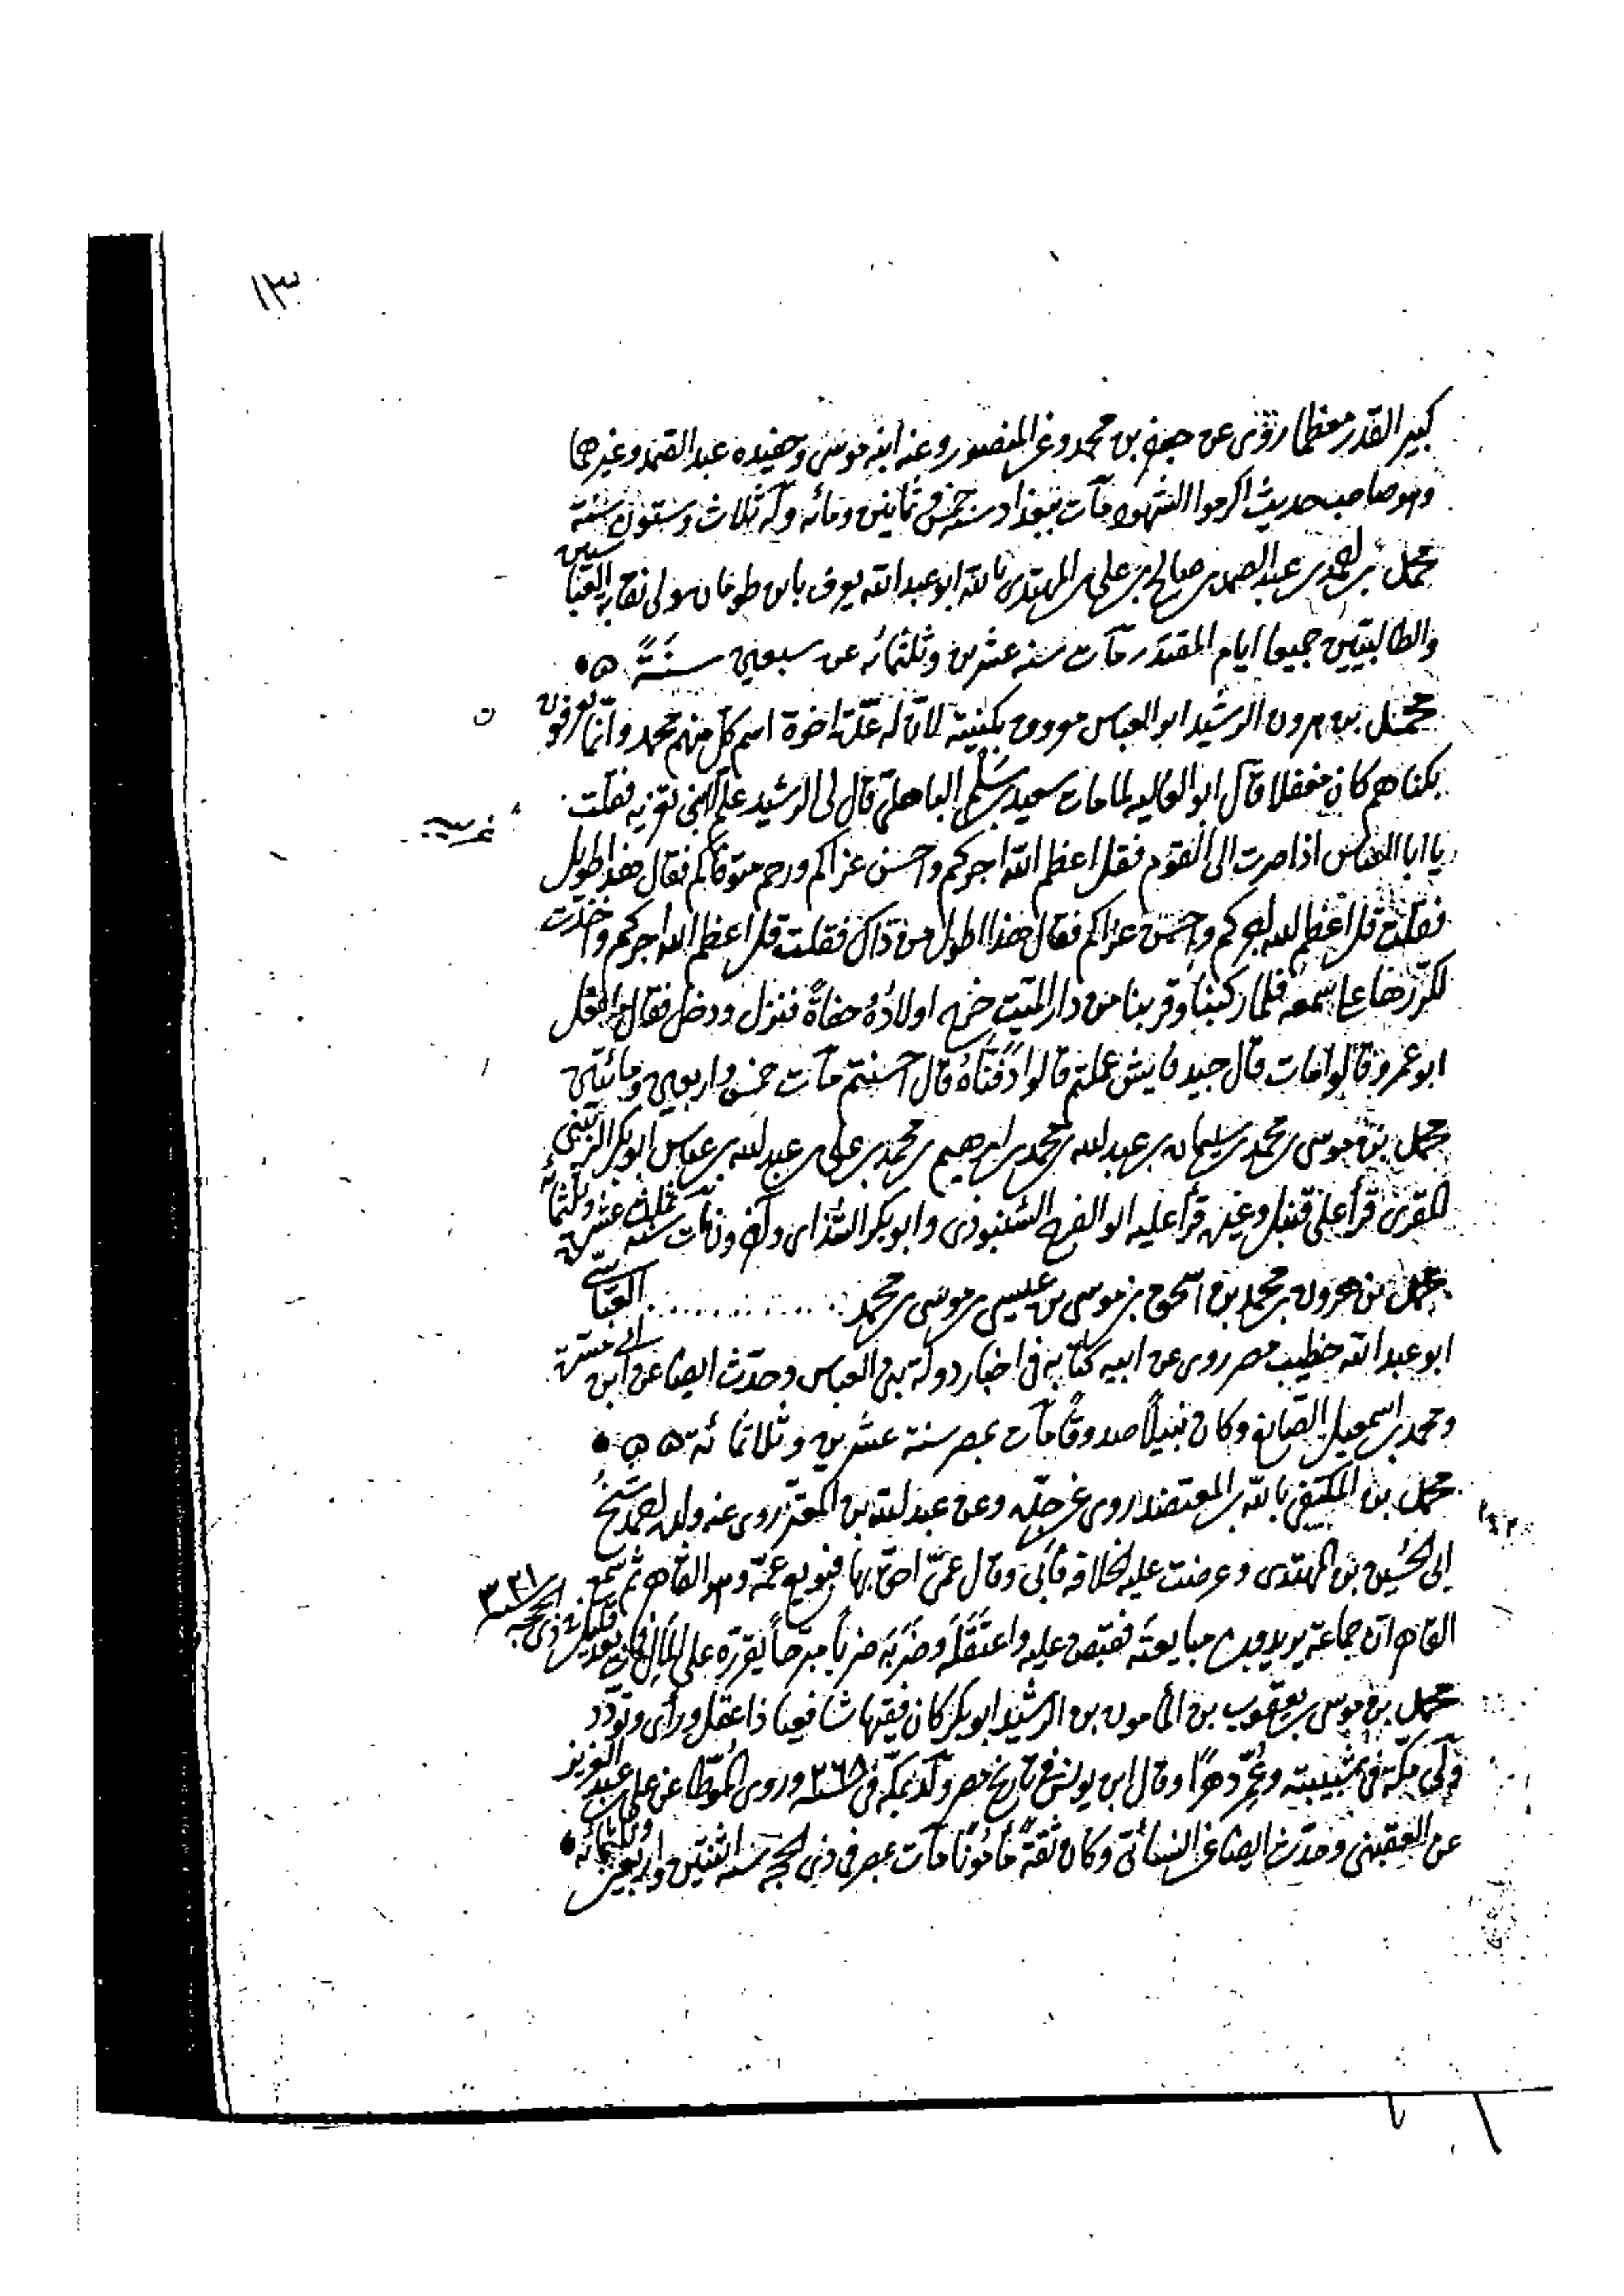 ١٣
كبير القدر معظما روى عن جعفر بن محمد وعن المنصور وعنه ابنه موسى وحفيده عبد الصمد وغيرهما
وهو صاحب حديث اكرموا الشهود مات ببغداد سنة خمس وثمانين ومائه وله ثلاث وستون سنة
محمد بن احمد بن عبد الصمد بن صالح بن علي بن المهتدى بالله ابو عبد الله يعرف بابن طومان ولى نقابه العباسيين
والطالبيين جميعا ايام المقتدر مات سنه عشرين وثلثمائه عن سبعين سنةً
محمد بن هرون الرشيد ابو العباس معروف بكنيته لان له عدّة اخوة اسم كل منهم محمد وانما يعرفون
بكناهم كان مغفلا قال ابو العاليه لما مات سعيد بن سلم الباهلى قال لى الرشيد علم ابنى تعزيه فقلت
يا ابا العباس اذا صرت الى القوم فقل اعظم الله اجركم واحسن عزاكم ورحم متوفاكم فقال هذا طويل
فقلت قل اعظم الله اجركم واحسن عزاكم فقال هذا اطول من ذاك فقلت قل اعظم الله اجركم واخذت
اكررها على سمعه فلما ركبنا وقربنا من دار الميت خرج اولادهُ حفاةً فنزل ودخل فقال ما فعل
ابو عمرو قالوا مات قال جيد فايش عملتم قالوا دفنّاهُ قال احسنتم مات خمس واربعين ومائتين
محمد بن موسى بن محمد بن سليمان بن عبد الله بن محمد بن ابرهيم بن محمد بن على بن عبد الله بن عباس ابو بكر الزينبى
المقرئ قرأ على قنبل وغيره قرأ عليه ابو الفرج الشنبوذى وابو بكر الشذاى وآخرون مات سنه ثلاث عشرة وثلثمائه
محمد بن هرون بن محمد بن اسحق بن موسى بن عيسى بن موسى بن محمد ............ العباسىّ
ابو عبد الله خطيب مصر روى عن ابيه كتابه فى اخبار دولة بنى العباس وحدّث ايضا عن ابن ابى ميسرة
ومحمد بن اسمعيل الصايغ وكان نبيلًا صدوقًا مات بمصر سنة عشرين وثلاثمائة
محمد بن المكتفى بالله بن المعتضد روى عن جدّه وعن عبد الله بن المعتز روى عنه ولده احمد شيخُ
ابى الحُسَين بن المهتدى وعرضت عليه الخلافه فأبى وقال عمّى احق بها فبويع عمّه وهو القاهر ثم سمع
القاهر ان جماعة يريدون مبايعته فقبض عليه واعتقلَه وضرَبَه ضربا مبرحاً يقرره على المال فمات بعد قليل فى ذى الحجه ٣٢١
محمد بن موسى بن يعقوب بن المامون بن الرشيد ابو بكر كان فقيها شافعيا ذا عقل ورأى وتودّد
ولى مكّة فى شبيبته وعُمّر دهرًا وقال ابن يونس فى تاريخ مصر ولد بمكة فى ٢٦٨ وروى المُوطّا عن على بن عبد العزيز
عن القعنبى وحدّث ايضا عن النسائىّ وكان ثقةً مأمونًا مات بمصر فى ذى الحجه سنه اثنتين واربعين وثلاثمائه